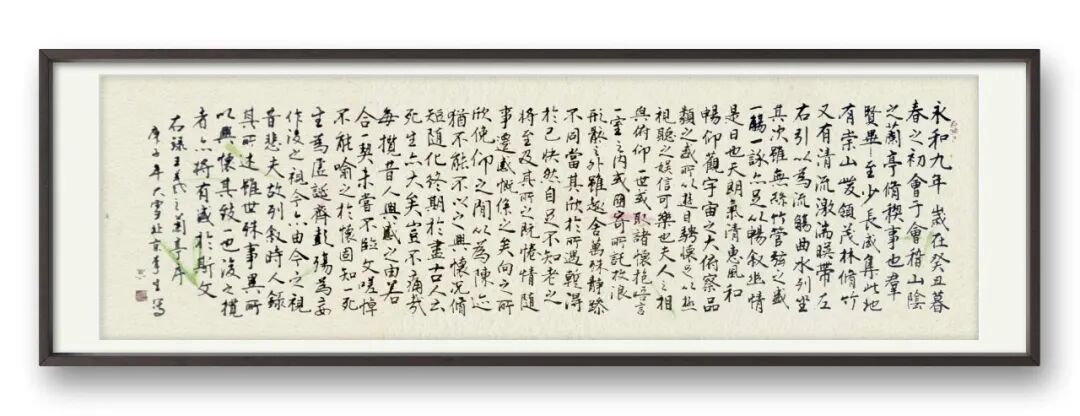 永和九年歲在癸丑暮
春之初會于會稽山陰
之蘭亭脩禊事也羣
賢畢至少長咸集此地
有崇山峻領茂林脩竹
又有清流激湍暎帶左
右引以為流觴曲水列坐
其次雖無絲竹管弦之盛
一觴一詠亦足以暢叙幽情
是日也天朗氣清惠風和
暢仰觀宇宙之大俯察品
類之盛所以遊目騁懷足以極
視聽之娛信可樂也夫人之相
與俯仰一世或取諸懷抱悟言
一室之内或因寄所託放浪
形骸之外雖趣舍萬殊靜躁
不同當其欣於所遇暫得
於己快然自足不知老之
將至及其所之既惓情隨
事遷感慨係之矣向之所
欣俛仰之間以為陳迹
猶不能不以之興懷況脩
短隨化終期於盡古人云
死生亦大矣豈不痛哉
每攬昔人興感之由若
合一契未嘗不臨文嗟悼
不能喻之於懷固知一死
生為虛誕齊彭殤為妄
作後之視今亦由今之視
昔悲夫故列叙時人錄
其所述雖世殊事異所
以興懷其致一也後之攬
者亦將有感於斯文
右錄王羲之蘭亭序
庚子年大雪北京李生寫